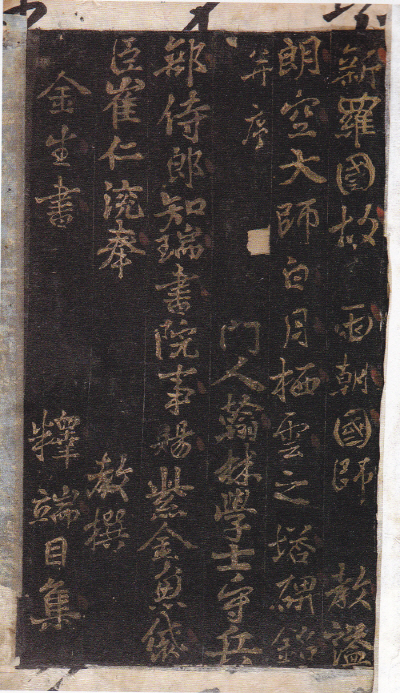 新羅國故 兩朝國師 教謚
朗空大師白月栖雲之塔碑銘
并序
門人翰林學士守兵
部侍郎知瑞書院事賜紫金魚袋
臣崔仁滾奉 教撰
金生書 釋端目集